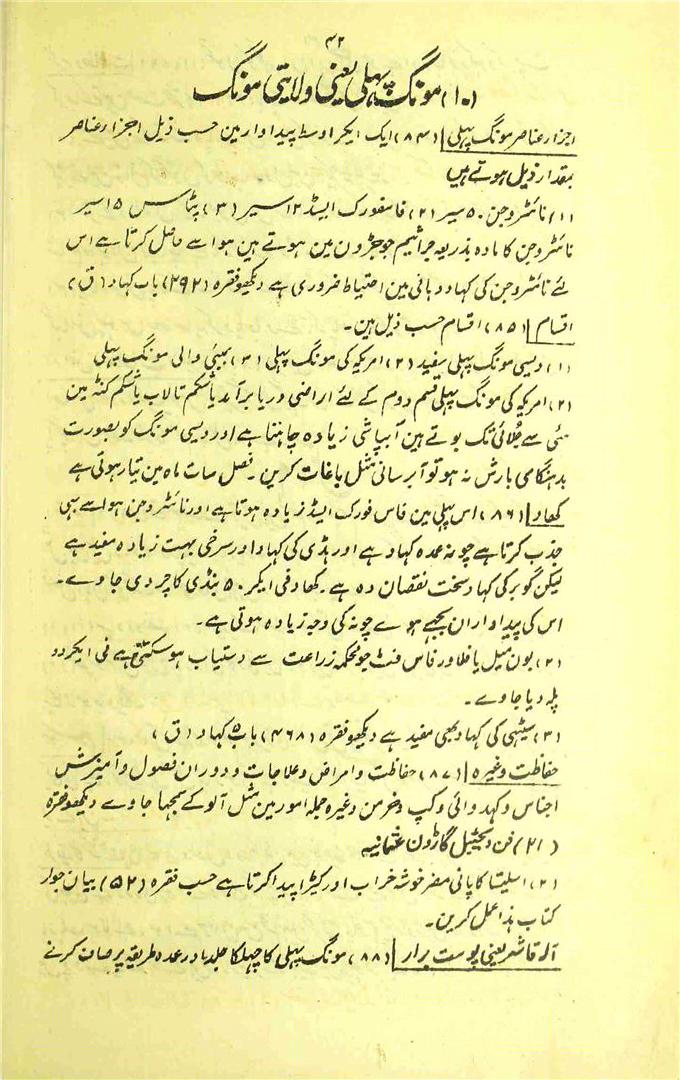 ۴۲
(۱۰) مونگ پہلی یعنی ولایتی مونگ
اجزار عناصر مونگ پہلی (۸۴) ایک ایکر اوسط پیداوار مین حسب ذیل اجزار عناصر
بمقدار ذیل ہوتے ہیں
(۱) نائٹروجن ۵۰ سیر (۲) فاسفورک ایسڈ ۱۲ سیر (۳) پٹاسس ۱۵ سیر
نائٹروجن کا مادہ بذریعہ جراثیم جو جڑون مین ہوتے ہین ہوا سے حاصل کرتا ہے اس
لئے نائٹروجن کی کہاد دہانی مین احتیاط ضروری ہے دیکہو فقرہ (۲۹۲) باب کہاد (ق)
اقسام (۸۵) اقسام حسب ذیل ہین۔
(۱) دیسی مونگ پہلی سفید (۲) امریکہ کی مونگ پہلی (۳) بمبئی والی مونگ پہلی
(۲) امریکہ کی مونگ پہلی قسم دوم کے لئے اراضی دریا برآمد یا شکم تالاب یا شکم کٹہ مین
مئی سے جُلائی تک بوتے ہین آبپاشی زیادہ چاہتا ہے اور دیسی مونگ کو بصورت
بدہنگامی بارش نہ ہو تو آبرسانی مثل باغات کرین۔ فصل سات ماہ مین تیار ہوتی ہے
کھاد (۸۶) اس پہلی مین فاس فورک ایسڈ زیادہ ہوتا ہے اور نائٹروجن ہوا سے بہی
جذب کرتا ہے چونہ عمدہ کہاد ہے اور ہڈی کی کہاد اور سرخی بہت زیادہ مفید ہے
لیکن گوبر کی کہاد سخت نقصان دہ ہے۔ کھاد فی ایکر ۵۰ بنڈی کا چر دی جاوے۔
اس کی پیداوار ان بجہے ہوے چونہ کی وجہ زیادہ ہوتی ہے۔
(۲) بون میل یا فلاور فاس فٹ جو محکمہ زراعت سے دستیاب ہو سکتی ہے فی ایکر دو
پلہ دیا جاوے۔
(۳) سیٹہی کی کہاد بھی مفید ہے دیکھو فقرہ (۴۶۸) باب ۵ کہاد (ق)
حفاظت وغیرہ (۸۷) حفاظت و امراض و علاجات و دوران فصول و آمیزش
اجناس و کہدوائی و کپ و خرمن وغیرہ جملہ امور مین مثل آلو کے سمجہا جاوے دیکھو فقرہ
(۲۱) فن وجیٹبل گارڈون عثمانیہ
(۲) اسلیشا کا پانی مضر خوشہ خراب اور کیڑا پیدا کرتا ہے حسب فقرہ (۵۲) بیان جوار
کتاب ہذا عمل کرین۔
آلہ قاشر یعنی پوست برار (۸۸) مونگ پہلی کا چہلکا جلد اور عمدہ طریقہ پر صاف کرنے